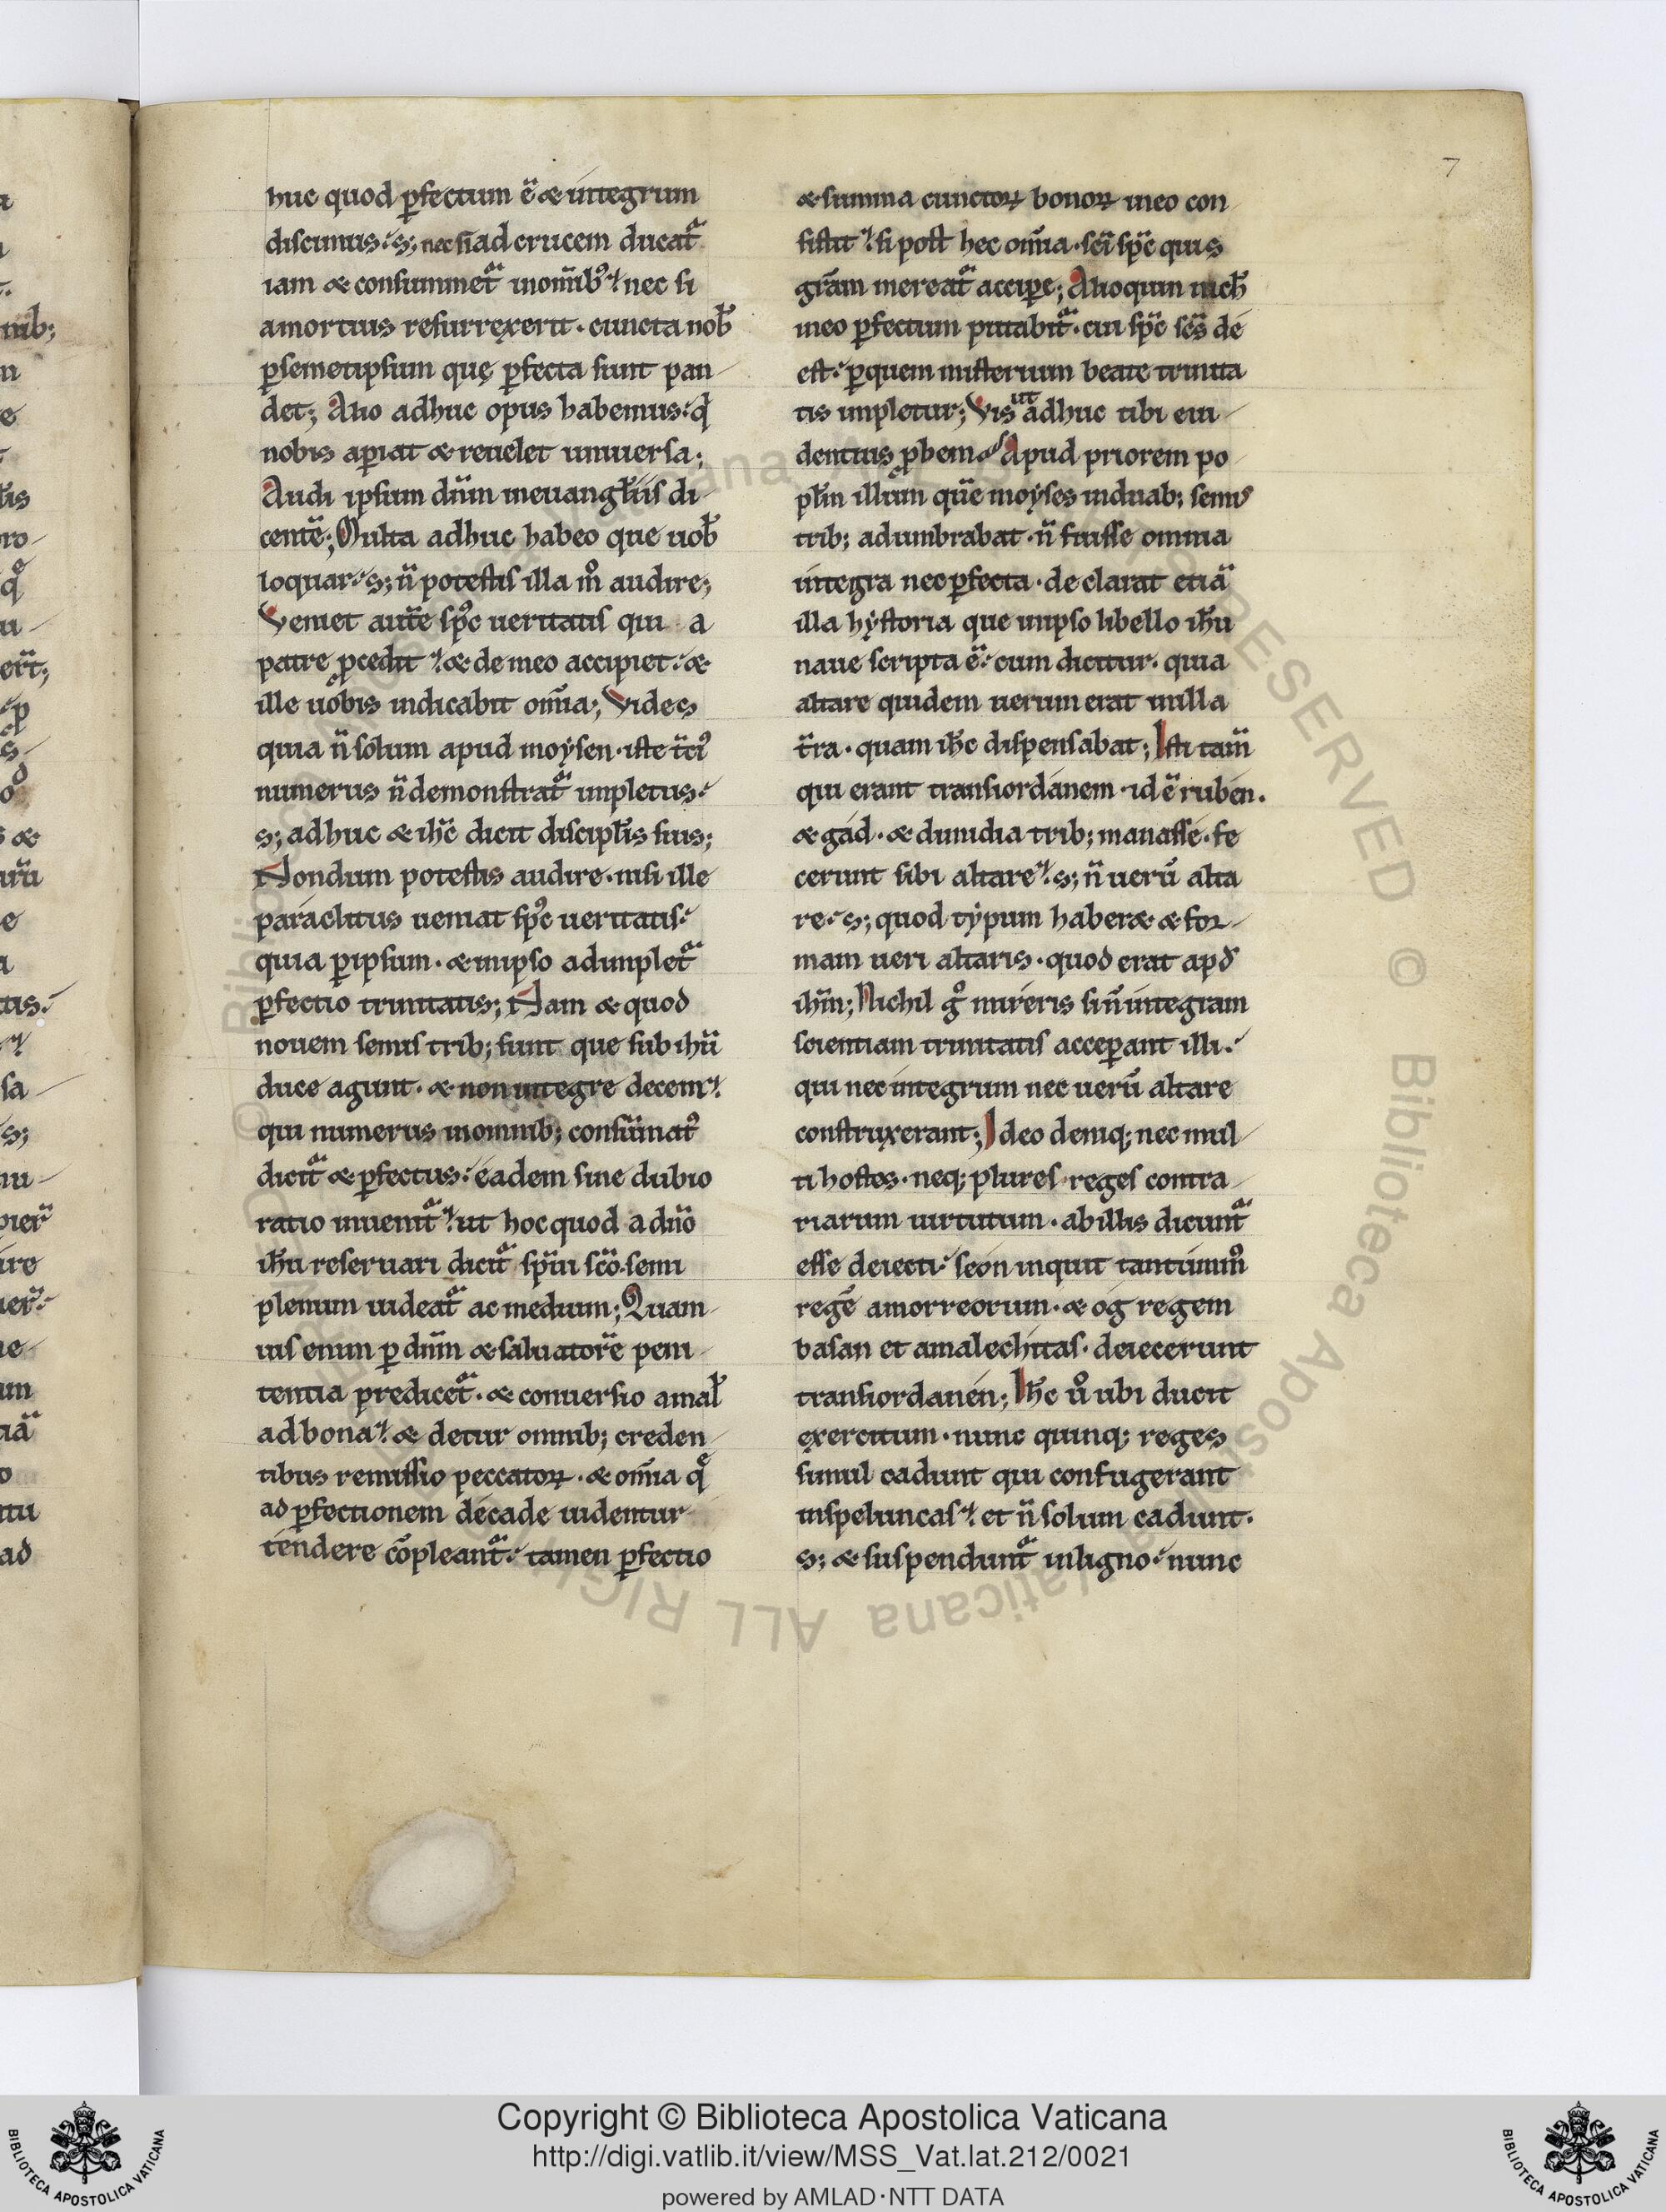 7
huc quod ꝑfectum ē & integrum
discimus. s; nec si ad crucem ducat᷑
iam & consummet᷑ inomīb᷒ nec si
a mortuis resurrexerit. cuncta nob̄
ꝑ semetipsum quę ꝑfecta sunt pan-
det; Alio adhuc opus habemus. q̇
nobis aꝑiat & reuelet uniuersa;
Audi ipsum dn̄m in euangłiis di-
centē; Multa adhuc habeo que uob̄
loquar. s; n̄ potestis illa m̊ audire;
Veniet autē sp̄c ueritatis qui a
patre ꝓcedit & de meo accipiet. &
ille uobis indicabit om̄ia; Vides
quia n̄ solum apud moẏsen. iste t̄ci᷒
numerus n̄ demonstrat᷑ impletus.
s; adhuc & ih̄c dicit discipłis suis;
Nondum potestis audire. nisi ille
paraclitus ueniat sp̄c ueritatis.
quia ꝑ ipsum. & in ipso adimplet᷑
ꝑfectio trinitatis; Nam & quod
nouem semis trib; sunt que sub ih̄u
duce agunt. & non integre decem.
qui numerus in omnib; consūmat᷒
dicit᷑ & ꝑfectus. eadem sine dubio
ratio inuenit᷑. ut hoc quod a dn̄o
ih̄u reseruari dicit᷑ sp̄iu sc̄o. semi
plenum uideat᷑ ac medium; Quam-
uis enim ꝑ dn̄m & saluatorē peni-
tentia predicet᷑. & conuersio a mał
ad bona. & detur omnib; creden-
tibus remissio peccatoꝝ. & om̄ia q̄
ad ꝑfectionem decade uidentur
tendere cōpleant᷑. tamen ꝑfectio
& summa cunctoꝝ bonoꝝ in eo con-
sistit. si post hec om̄ia. sc̄i sp̄c quis
grām mereat᷑ acciꝑe; Alioquin nich̄
in eo ꝑfectum putabit᷑. cui sp̄c sc̄s de
est. ꝑ quem misterium beate trinita
tis impletur; Vis ut adhuc tibi eui-
dentius ꝓbem Apud priorem po-
pł̄m illum quē moẏses in duab; semis
trib; adumbrabat. n̄ fuisse omnia
integra nec ꝑfecta. declarat etiā
illa hẏstoria que in ipso libello ih̄u
naue scripta ē. cum dicitur. quia
altare quidem uerum erat in illa
t̄ra. quam ih̄c dispensabat; Isti tam̄
qui erant trans iordanem. id ē ruben.
& gad. & dimidia trib; manasse. fe
cerunt sibi altare. s; n̄ uerū alta
re. s; quod tẏpum haber& & for-
mam ueri altaris. quod erat apd̄
ih̄m; Nichil g̊ mireris si n̄ integram
scientiam trinitatis acceꝑant illi.
qui nec integrum nec uerū altare
construxerant; Ideo deniq; nec mul-
ti hostes. neq; plures reges contra-
riarum uirtutum. ab illis dicunt᷑
esse deiecti. seon inquit tantummͦ
regē amorreorum. & og regem
basan et amalechitas. deiecerunt
trans iordanen; Ih̄c ů ubi ducit
exercitum. nunc quinq; reges
simul cadunt qui confugerant
in speluncas. et n̄ solum cadunt.
s; & suspendunt᷑ in ligno. nunc
Copyright © Biblioteca Apostolica Vaticana
http://digi.vatlib.it/view/MSS_Vat.lat.212/0021
powered by AMLAD·NTT DATA
BIBLIOTECA APOSTOLICA VATICANA
BIBLIOTECA APOSTOLICA VATICANA